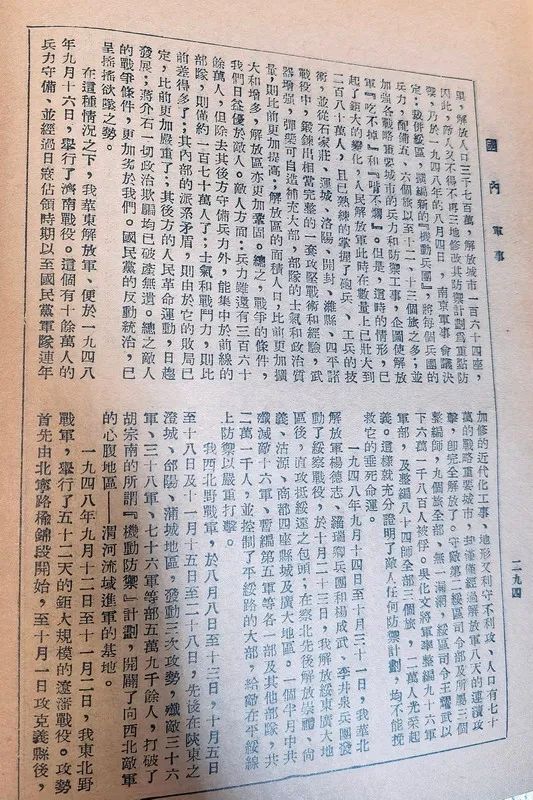 國內　軍事
里，解放人口三千七百萬，解放城市一百六十四座，
因此，蔣人又不得不再三地修改其防禦計劃爲重點防
禦，乃於一九四八年的八月四日，南京軍事會議決
定：裁併綏區，擴編新的『機動兵團』，將每個兵團的
兵力，配備五、六個旅以至十二、十三個旅之多；並
加強各戰略重要城市的兵力和防禦工事，企圖使解放
軍『吃不掉』和『啃不爛』。但是，這時的情形，已
起了鉅大的變化，人民解放軍此時在數量上已壯大到
二百八十萬人，且已熟練的掌握了砲兵、工兵的技
術，並從石家莊、運城、洛陽、開封、濰縣、四平諸
戰役中，鍛鍊出相當完整的一套攻堅戰術和經驗，武
器增強，彈藥可自造補充大部，部隊的士氣和政治質
量，則比前更加提高；解放區的面積人口，比前更加擴
大和增多，解放區亦更加鞏固。總之，戰爭的條件，
我們日益優於敵人。敵人方面：兵力雖還有三百六十
餘萬人，但除去其後方守備兵力外，能集中於前線的
部隊，則僅約一百七十萬人了；士氣和戰鬥力，則比
前差得多了；其內部的派系矛盾，則由於它的敗局已
定，比前更加嚴重了；其後方的人民革命運動，日趨
發展；蔣介石一切政治欺騙均已破產無遺。總之敵人
的戰爭條件，更加劣於我們。國民黨的反動統治，已
呈搖搖欲墜之勢。
在這種情況之下，我華東解放軍，便於一九四八
年九月十六日，舉行了濟南戰役。這個有十餘萬人的
兵力守備、並經過日寇佔領時期以至國民黨軍隊連年
二九四
加修的近代化工事、地形又利守不利攻、人口有七十
萬的戰略重要城市，却僅僅經過解放軍八天的連續攻
擊，卽完全解放了。守敵第二綏區司令部及所屬三個
整編師，九個旅全部，無一漏網，綏區司令王耀武以
下六萬一千八百人被俘。吳化文將軍率整編九十六軍
軍部，及整編八十四師全部三個旅，二萬人光榮起
義。這樣就充分證明了敵人任何防禦計劃，均不能挽
救它的垂死命運。
一九四八年九月十四日至十月三十一日，我華北
解放軍楊德志、羅瑞卿兵團和楊成武、李井泉兵團發
動了綏察戰役，於十月二十三日，我解放綏東廣大地
區後，直攻抵綏遠之包頭；在察北先後解放崇禮、尙
義、沽源、商都四座縣城及廣大地區。一個半月中共
殲滅敵十六軍、暫編第五軍等各一部及其他部隊，共
二萬一千人，並控制了平綏路的大部，給敵在平綏線
上防禦以嚴重打擊。
我西北野戰軍，於八月八日至十三日，十月五日
至十八日及十一月十五日至二十八日，先後在陝東之
澄城、郃陽、蒲城地區，發動三次攻勢，殲敵三十六
軍、三十八軍、七十六軍等部五萬九千餘人，打破了
胡宗南的所謂『機動防禦』計劃，開闢了向西北敵軍
的心腹地區——渭河流域進軍的基地。
一九四八年九月十二日至十一月二日，我東北野
戰軍，舉行了五十二天的鉅大規模的遼瀋戰役。攻勢
首先由北寧路楡錦段開始，至十月一日攻克義縣後，